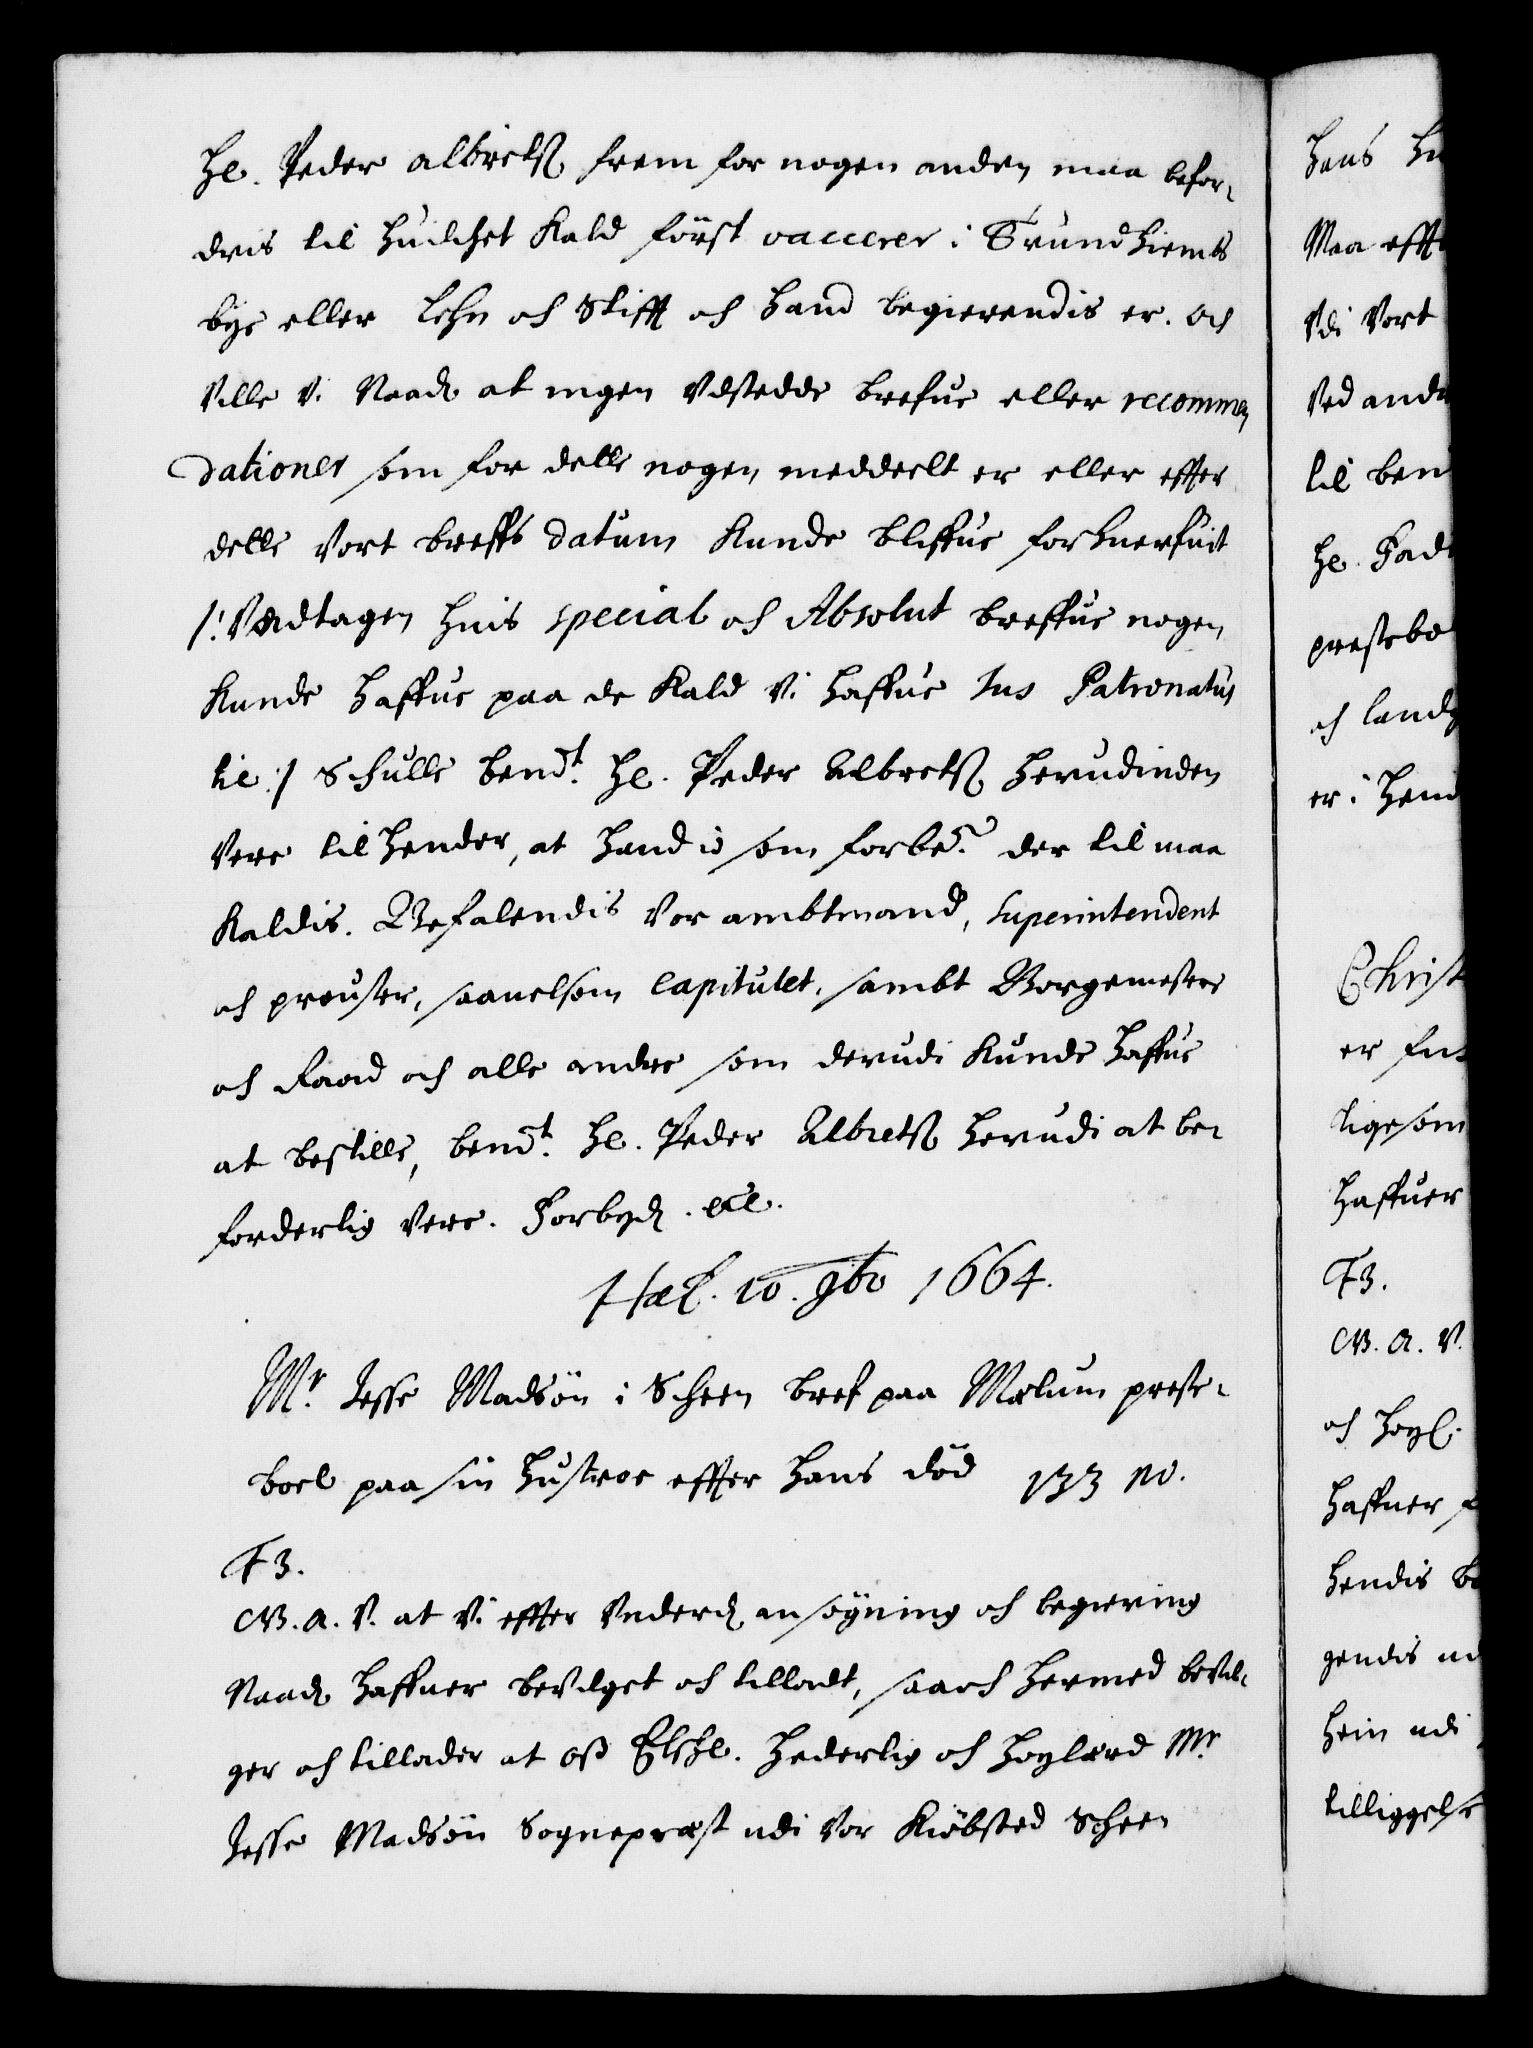 Hr. Peder albretß. frem for nogen anden maa befor-
dris til huilchet Kald först vaccerer i Trundhiembs
bye eller Lehn och Stifft och hand begierendis er. Och
Ville Vi Naad. at ingen Udstedde brefue eller recommen
dationer som for dette nogen meddeelt er eller effter
dette Vort breffs datum Kunde bliffue forhuerfuit
/: Undtagen huis special och Absolut breffue nogen
Kunde haffue paa de Kald Vi haffue Ius Patronatus
til :/ Schulle bemt. Hr. Peder Albretß. herudinden
Vere til hender, at hand io som forbet. der til maa
Kaldis. Befalendis Vor ambtmand, Superintendent
och prouster, saauelsom Capitulet, sambt Borgemestere
och Raad och alle andre som derudi Kunde haffue
at bestille, bemt. Hr. Peder Albretß. herudi at be-
forderlig Vere. Forbyd. etc.
Haf. 10. 9bo 1664.
Mr. Iesse Madsön i Scheen bref paa Melum preste-
boel paa sin hustroe effter hans död 133 no.
F3.
G. A. V. at Vi effter Underd. ansögning och begiering
Naad. haffuer bevilget och tilladt, saa och hermed bevil-
ger och tillader at oß Elschl. hederlig och höylærd Mr.
Iesse Madsön Sogneprest udi Vor Kiöbsted Scheen
hans
Maa efft
Udi Vort
Ved and
til
Hr.
prestebo
och land
er i
Christ
er
ligesom
haffuer
F3.
G. A. V.
och
haffuer
hendis
gendis
udi
tilliggelse